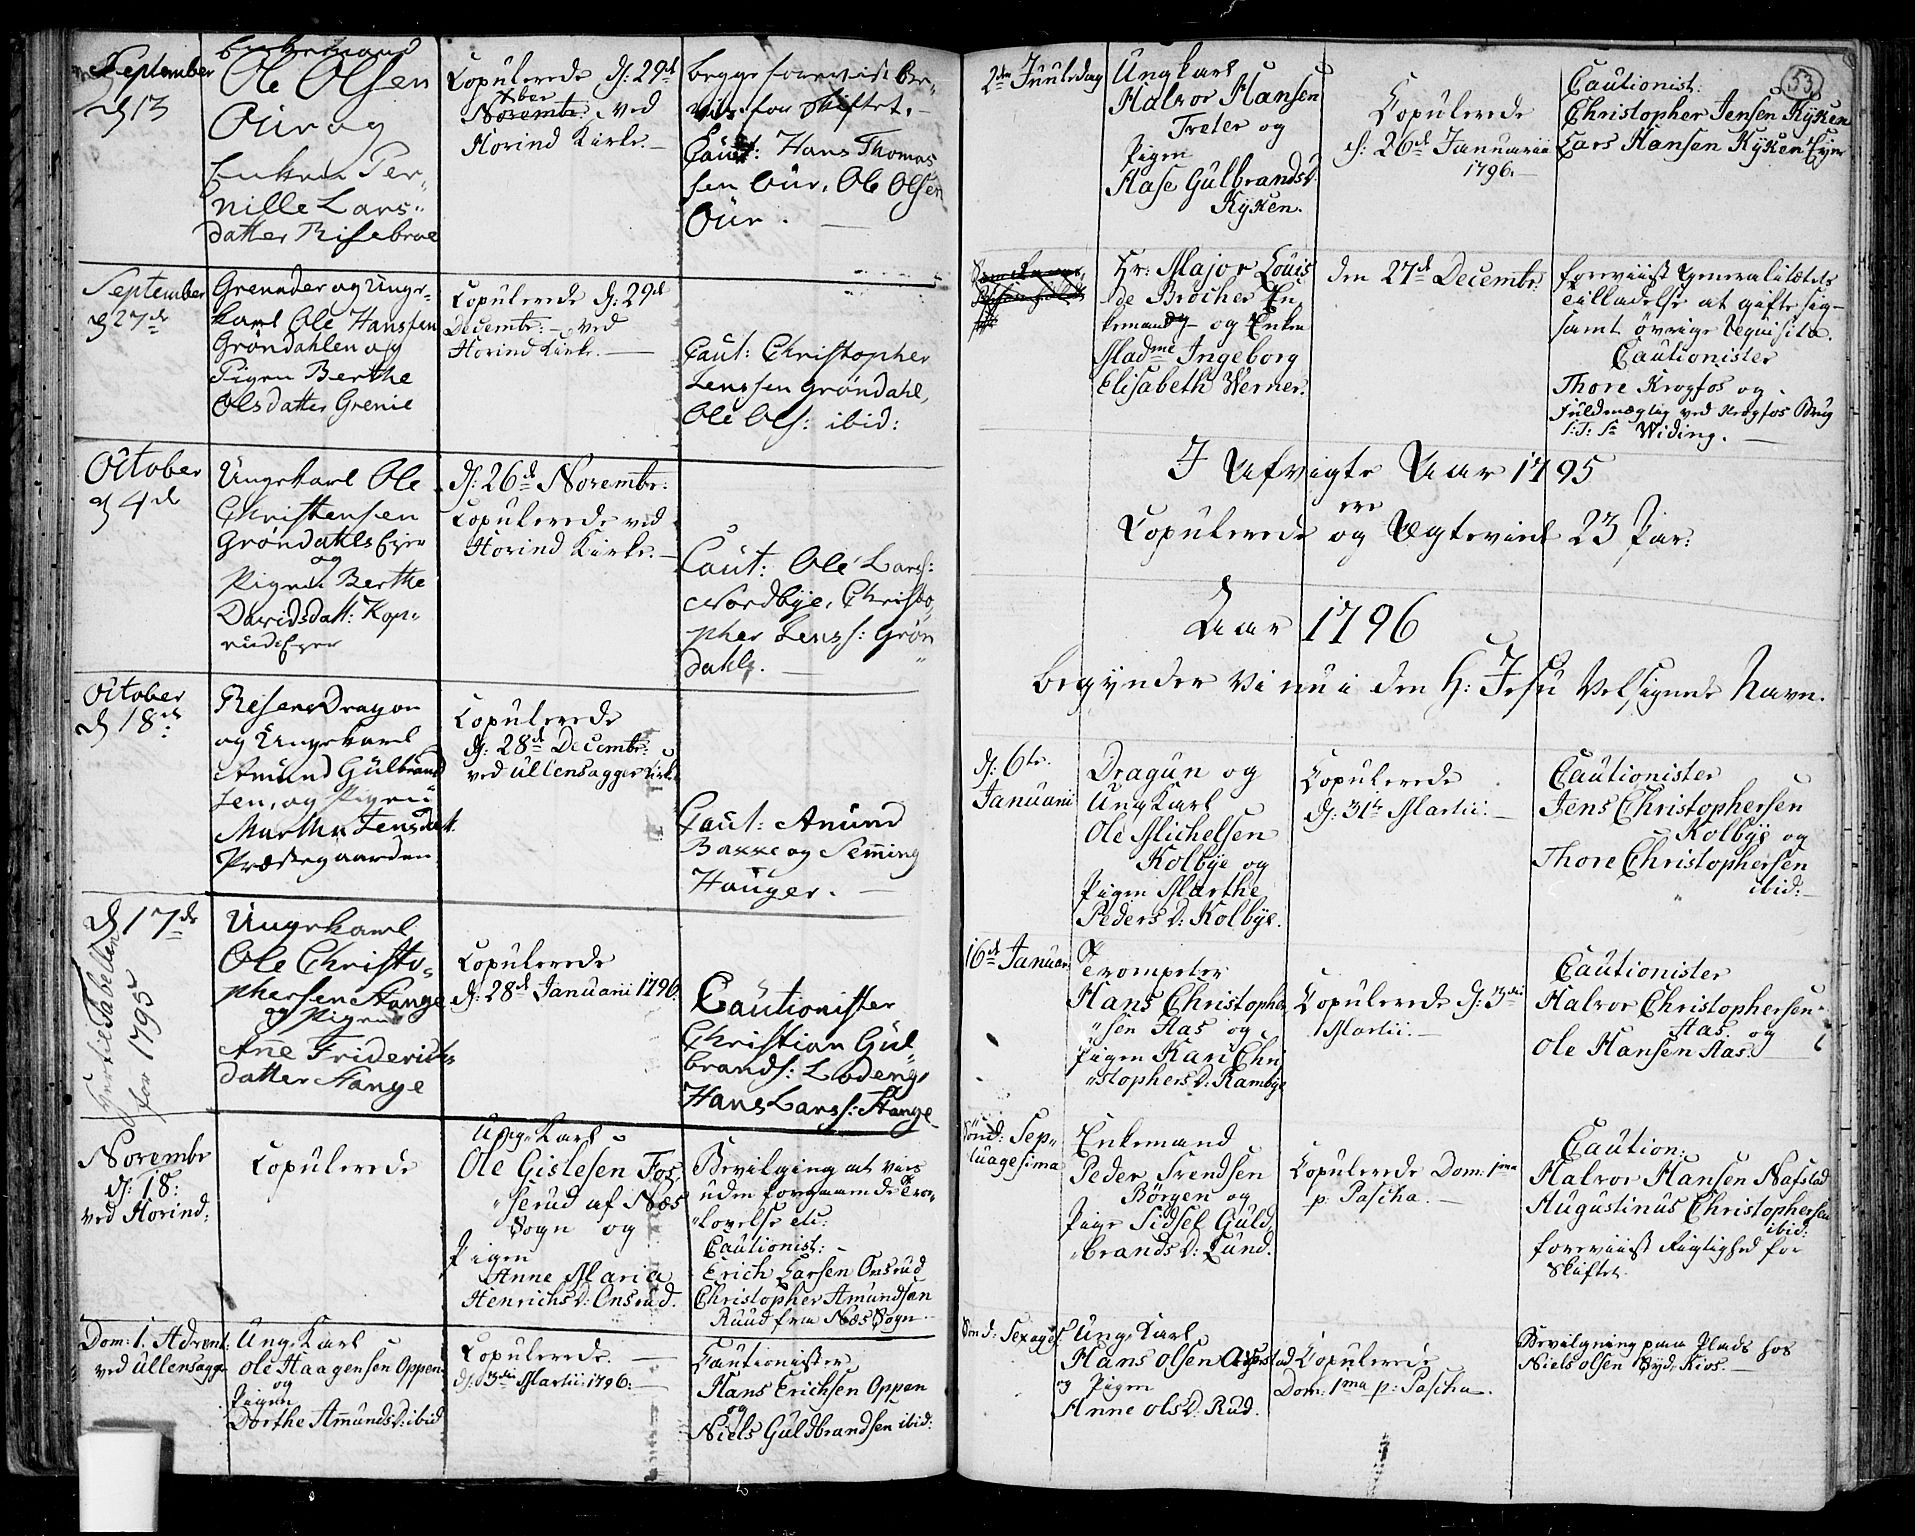 September
d 13
Enkemand
Ole Olsen
Ouer og
Enken Per-
nille Lars-
datter Risebroe
Copulerede d: 29d
Xber
Novembr: ved
Hovind Kirke.
begge foreviist Be-
viis for Skiftet.
Caut: Hans Thomas
sen Our, Ole Olsen
Our.
September
d 27de
Grenader og Unge-
karl Ole Hanssen
Grøndahlen og
Pigen Berthe
Olsdatter Grenie
Copulerede d: 29d
Decembr: ved
Hovind Kirke.
Caut: Christopher
Jenssen Grøndahl,
Ole Ols: ibid:
October
d 4de
Ungekarl Ole
Christensen
Grøndahls Eier
og
Pigen Berthe
Davidsdatt: Kop-
rud Eier
d: 26d Novembr:
Copulerede ved
Hovind Kirke.
Caut: Ole Lars:
Nordbye, Christo-
pher Jens: Grøn
dahl.
October
d 18de
Reserve Dragon
og Ungekarl
Amund Gulbrand
sen, og Pigen
Marthe Jensdat.
Præstegaarden
Copulerede
d: 28d Decembr:
ved Ullensagger Kirke
Caut: Amund
Bakke og Semming
Hauger.
d 17de
ført til Tabellen
for 1795
Ungekarl
Ole Christo-
phersen Hange
og Pigen
Anne Friderichs
datter Hange
Copulerede
d: 28d Januarii 1796.
Cautionister
Christian Gul
brands: Lodeng,
Hans Larss: Hange
Novembr
d: 18:
ved Hovind:
Copulerede
Unge Karl
Ole Gislesen Fos
serud af Næs
Sogn og
Pigen
Anne Maria
Henrichs D: Onsrud.
Bevilging at vies
uden foregaaende Tro-
lovelse etc:
Cautionist:
Erich Larsen Onsrud
Christopher Amundsen
Ruud fra Næs Sogn
Dom: 1. Advent:
ved Ullensagg
Ung Karl
Ole Haagensen Oppen
og
Pigen
Dorthe Amunds D: ibid
Copulerede.
d: 3die Martii 1796.
Cautionister
Hans Erichsen Oppen
og
Niels Guldbrandsen ibid:
53
2den Juuledag
Ungkarl
Halvor Hansen
Treter og
Pigen
Aase Gulbrands D.
Kyken.
Copulerede
d: 26d Januarii
1796.
Cautionist:
Christopher Jensen Kyken
Lars Hansen Kyken Eyer
Hr: Major Louis
de Brocher En
kemand og Enken
Madme Ingeborg
Elisabeth Werner.
den 27d Decembr:
foreviist Generalitætets
Tilladelse at gifte sig
samt øvrige Reqvisita.
Cautionister
Thore Krogfos og
Fuldmægtig ved Krogfos Brug
S: T: Sr Widing.
I Afvigte Aar 1795
ere
Copulerede og Ægteviede 23 Par:
Aar 1796
begynder vi nu i den H: Jesu Velsignede Navn.
d: 6te
Januarii
Dragun og
Ung Karl
Ole Michelsen
Kolbye og
Pigen Marthe
Peders D: Kolbye.
Copulerede
d: 31te Martii.
Cautionister
Jens Christophersen
Kolbye og
Thore Christophersen
ibid:
16d Januar:
Trompeter
Hans Christopher
sen Aas og
Pigen Kari Chri
stophers D: Rambye
Copulerede d: 3die
Martii.
Cautionister
Halvor Christophersen
Aas og
Ole Hansen Aas.
Sønd: Sep-
tuagesima
Enkemand
Peder Svendsen
Börgen og
Pige Sidsel Guld
brands D: Lund.
Copulerede Dom: 1ma
p: Pascha.
Caution:
Halvor Hansen Nafstad
Augustinus Christophersen
ibid:
foreviist Rigtighed for
Skiftet.
Sønd: Sexages:
Ung Karl
Hans Olsen
og Pigen
Anne Ols D: Rud.
Copulerede
Dom: 1ma p: Pascha.
Bevilgning paa Plads hos
Niels Olsen Syd Kios.